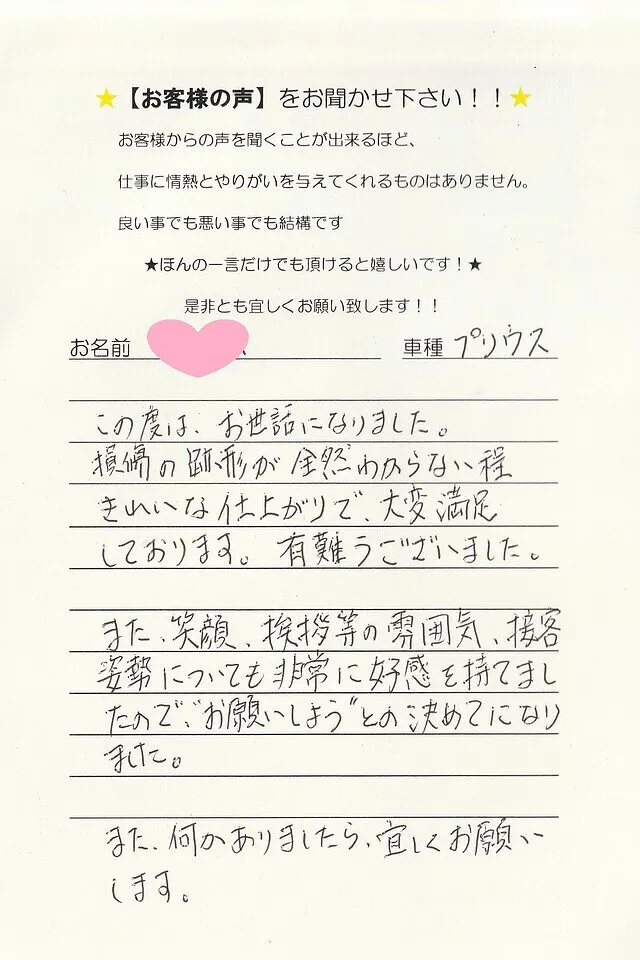 ★【お客様の声】をお聞かせ下さい！！★
お客様からの声を聞くことが出来るほど、
仕事に情熱とやりがいを与えてくれるものはありません。
良い事でも悪い事でも結構です
★ほんの一言だけでも頂けると嬉しいです！★
是非とも宜しくお願い致します！！
お名前 車種 プリウス
この度は、お世話になりました。
損傷の跡形が全然わからない程
きれいな仕上がりで、大変満足
しております。有難うございました。
また、笑顔、挨拶等の雰囲気、接客
姿勢についても非常に好感を持てまし
たので、"お願いしよう"との決めてになり
ました。
また、何かありましたら、宜しくお願い
します。